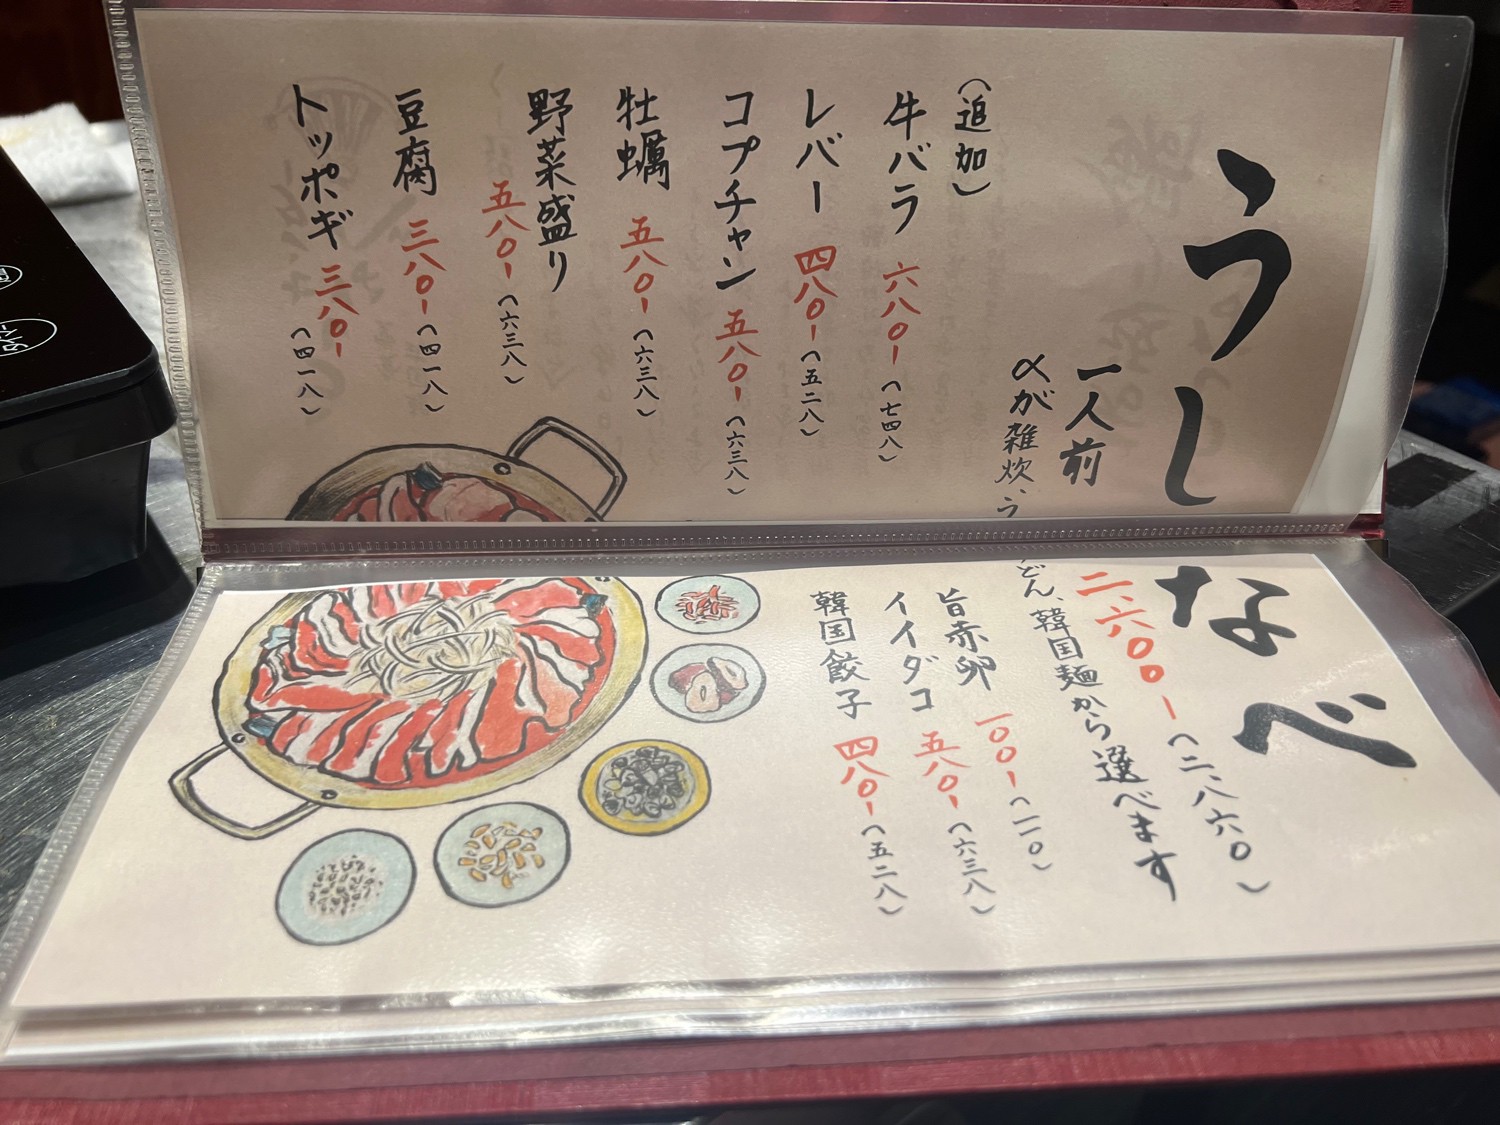 うしなべ
一人前 二、六〇〇ー(二、八六〇)
〆が雑炊、うどん、韓国麺から選べます
(追加)
牛バラ 六八〇ー(七四八)
レバー 四八〇ー(五二八)
コプチャン 五八〇ー(六三八)
牡蠣 五八〇ー(六三八)
野菜盛り 五八〇ー(六三八)
豆腐 三八〇ー(四一八)
トッポギ 三八〇ー(四一八)
旨赤卵 一〇〇ー(一一〇)
イイダコ 五八〇ー(六三八)
韓国餃子 四八〇ー(五二八)